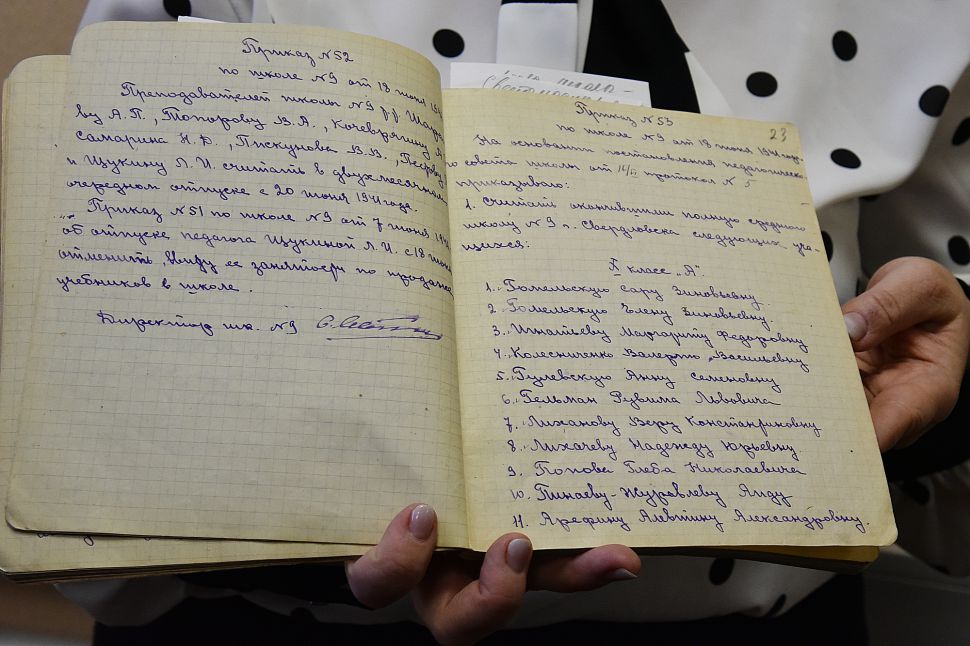 Приказ №52
по школе №9 от 18 июня 194
Преподавателей школы №9
ву А.П., Топорову В.А., Кочеврягину
самарина Н.Д., Пискунова В.В.,
и Щукину Л.И. считать в двухмесячном
очередном отпуске с 20 июня 1941 года.
Приказ №51 по школе №9 от 7 июня
об отпуске педагога Щукиной Л.И. с 18 июня
отменить, ввиду ее занятости по продаже
учебников в школе.
Директор шк. №9
23
Приказ №53
по школе №9 от 19 июня 1941 года
На основании постановления педагогическо-
го совета школы от 14/VI протокол №5
приказываю:
1. Считать окончившими полную среднюю
школу №9 г. Свердловска следующих уча-
щихся:
X класс „А".
1. Гомельскую Сару Зиновьевну.
2. Гомельскую Елену Зиновьевну.
3. Игнатьеву Маргариту Федоровну
4. Колесниченко Валерию Васильевну
5. Гулевскую Анну Семеновну
6. Гельман Рувима Львовича
7. Лиханову Веру Константиновну
8. Лихачеву Надежду Юрьевну
9. Попова Глеба Николаевича
10. Пинаеву-Журавлеву Аиду
11. Арефину Алевтину Александровну.